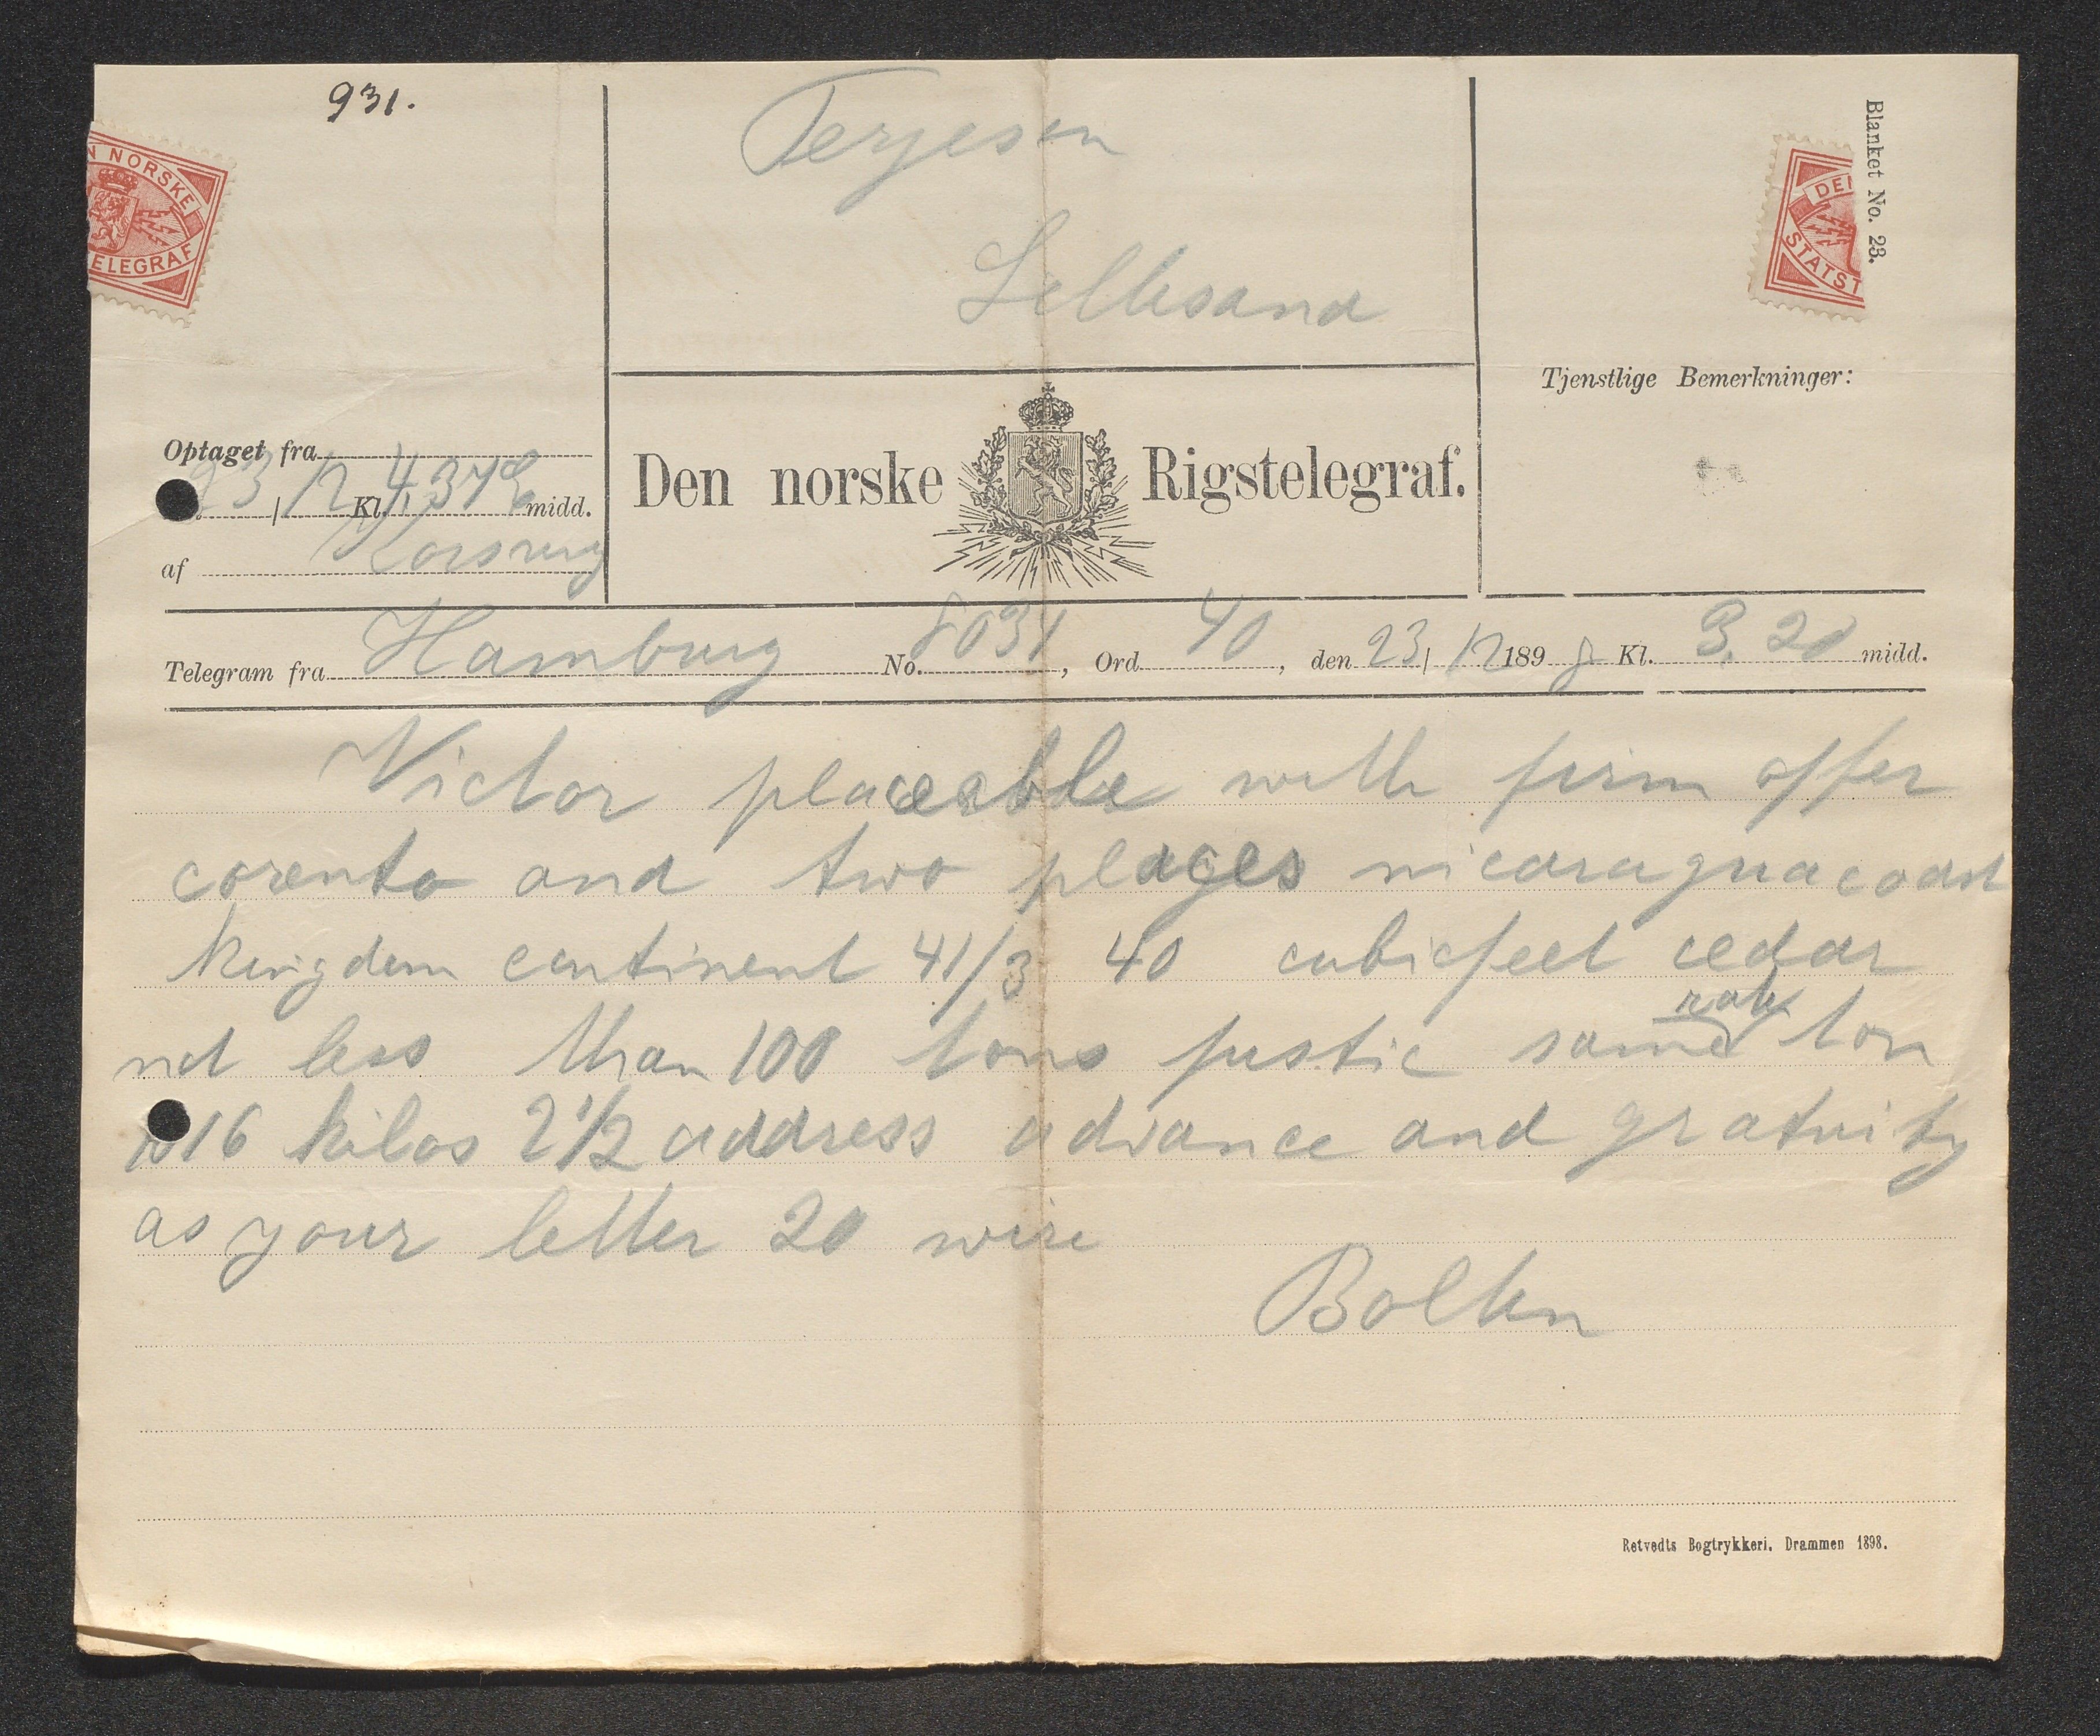 931.
Terjesen
Lillesand
N NORSKE
ELEGRAF
DEN
STATST
Blanket No. 23.
Tjenstlige Bemerkninger:
Optaget fra
23/12 Kl. 4 37 E midd.
af
Den norske Rigstelegraf.
Telegram fra Hamburg No. 8031, Ord 40, den 23/12 1898 Kl. 3.20 midd.
Victor placeable with firm offer
corento and two places nicaraguacoast
kingdom continent 41/3 40 cubicfeet cedar
not less than 100 tons fustic same rate ton
1016 kilos 2 1/2 address advance and gratuity
as your letter 20 wire
Bolten
Retvedts Bogtrykkeri. Drammen 1898.